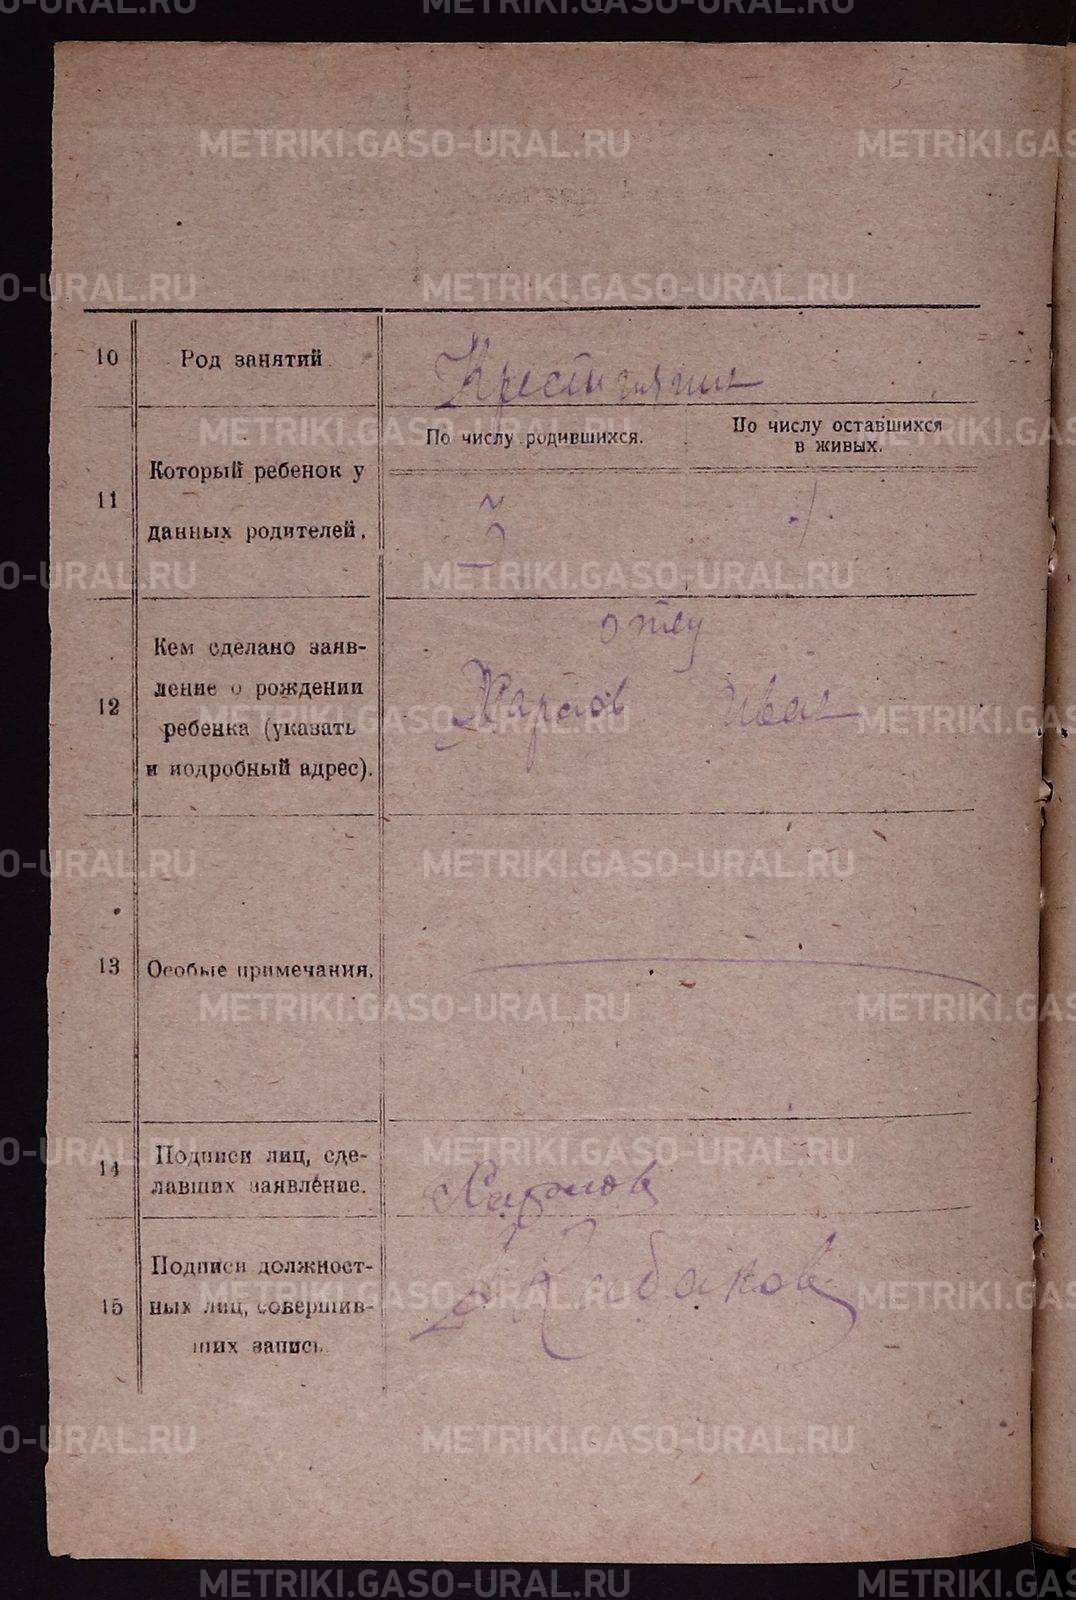 10 Род занятий Крестьянин
11 Который ребенок у данных родителей.
По числу родившихся.
По числу оставшихся
в живых.
3
отец
12 Кем сделано заяв-
ление о рождении
ребенка (указать
и подробный адрес).
Иван
13 Особые примечания.
14 Подписи лиц, сде-
лавших заявление.
15 Подписи должност-
ных лиц, совершив-
ших запись
Кабаков
METRIKI.GASO-URAL.RU